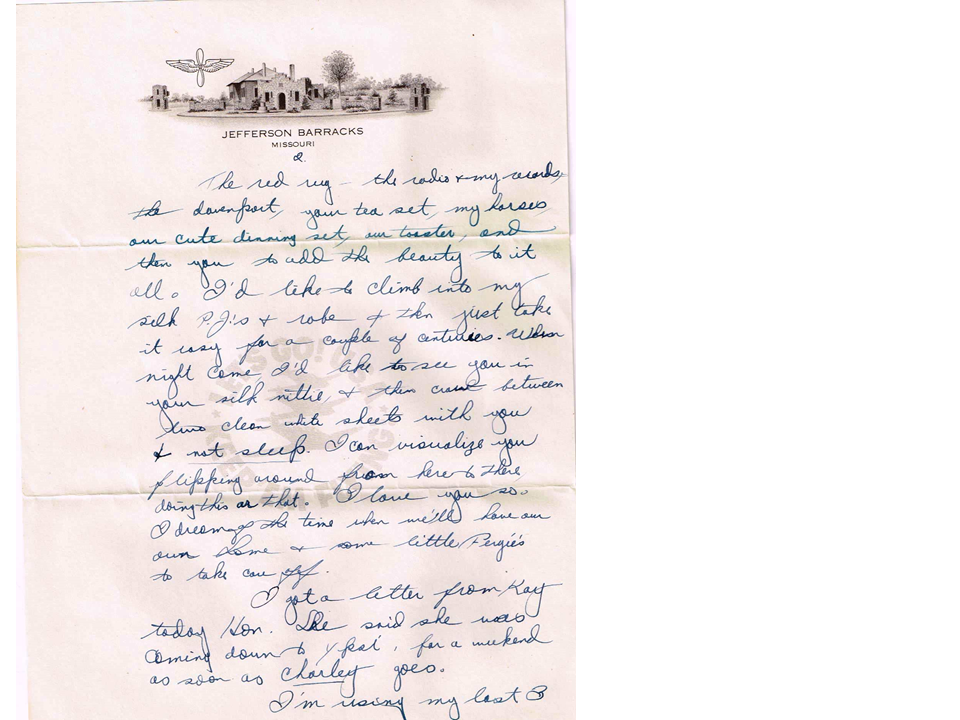 JEFFERSON BARRACKS
MISSOURI
2.
The red rug - the radio & my records,
the davenport, your tea set, my horses
our cute dinning set, our toaster, and
then you to add the beauty to it
all. I'd like to climb into my
silk P.J.'s & robe & then just take
it easy for a couple of centuries. When
night come I'd like to see you in
your silk nittie, & then crawl between
two clean white sheets with you
& not sleep. I can visualize you
flipping around from here to there
doing this or that. I love you so.
I dream of the time when we'll have our
own home & some little Pergie's
to take care off.
I got a letter from Kay
today Hon. She said she was
coming down to Ypsi, for a weekend
as soon as Charley goes.
I'm using my last 3